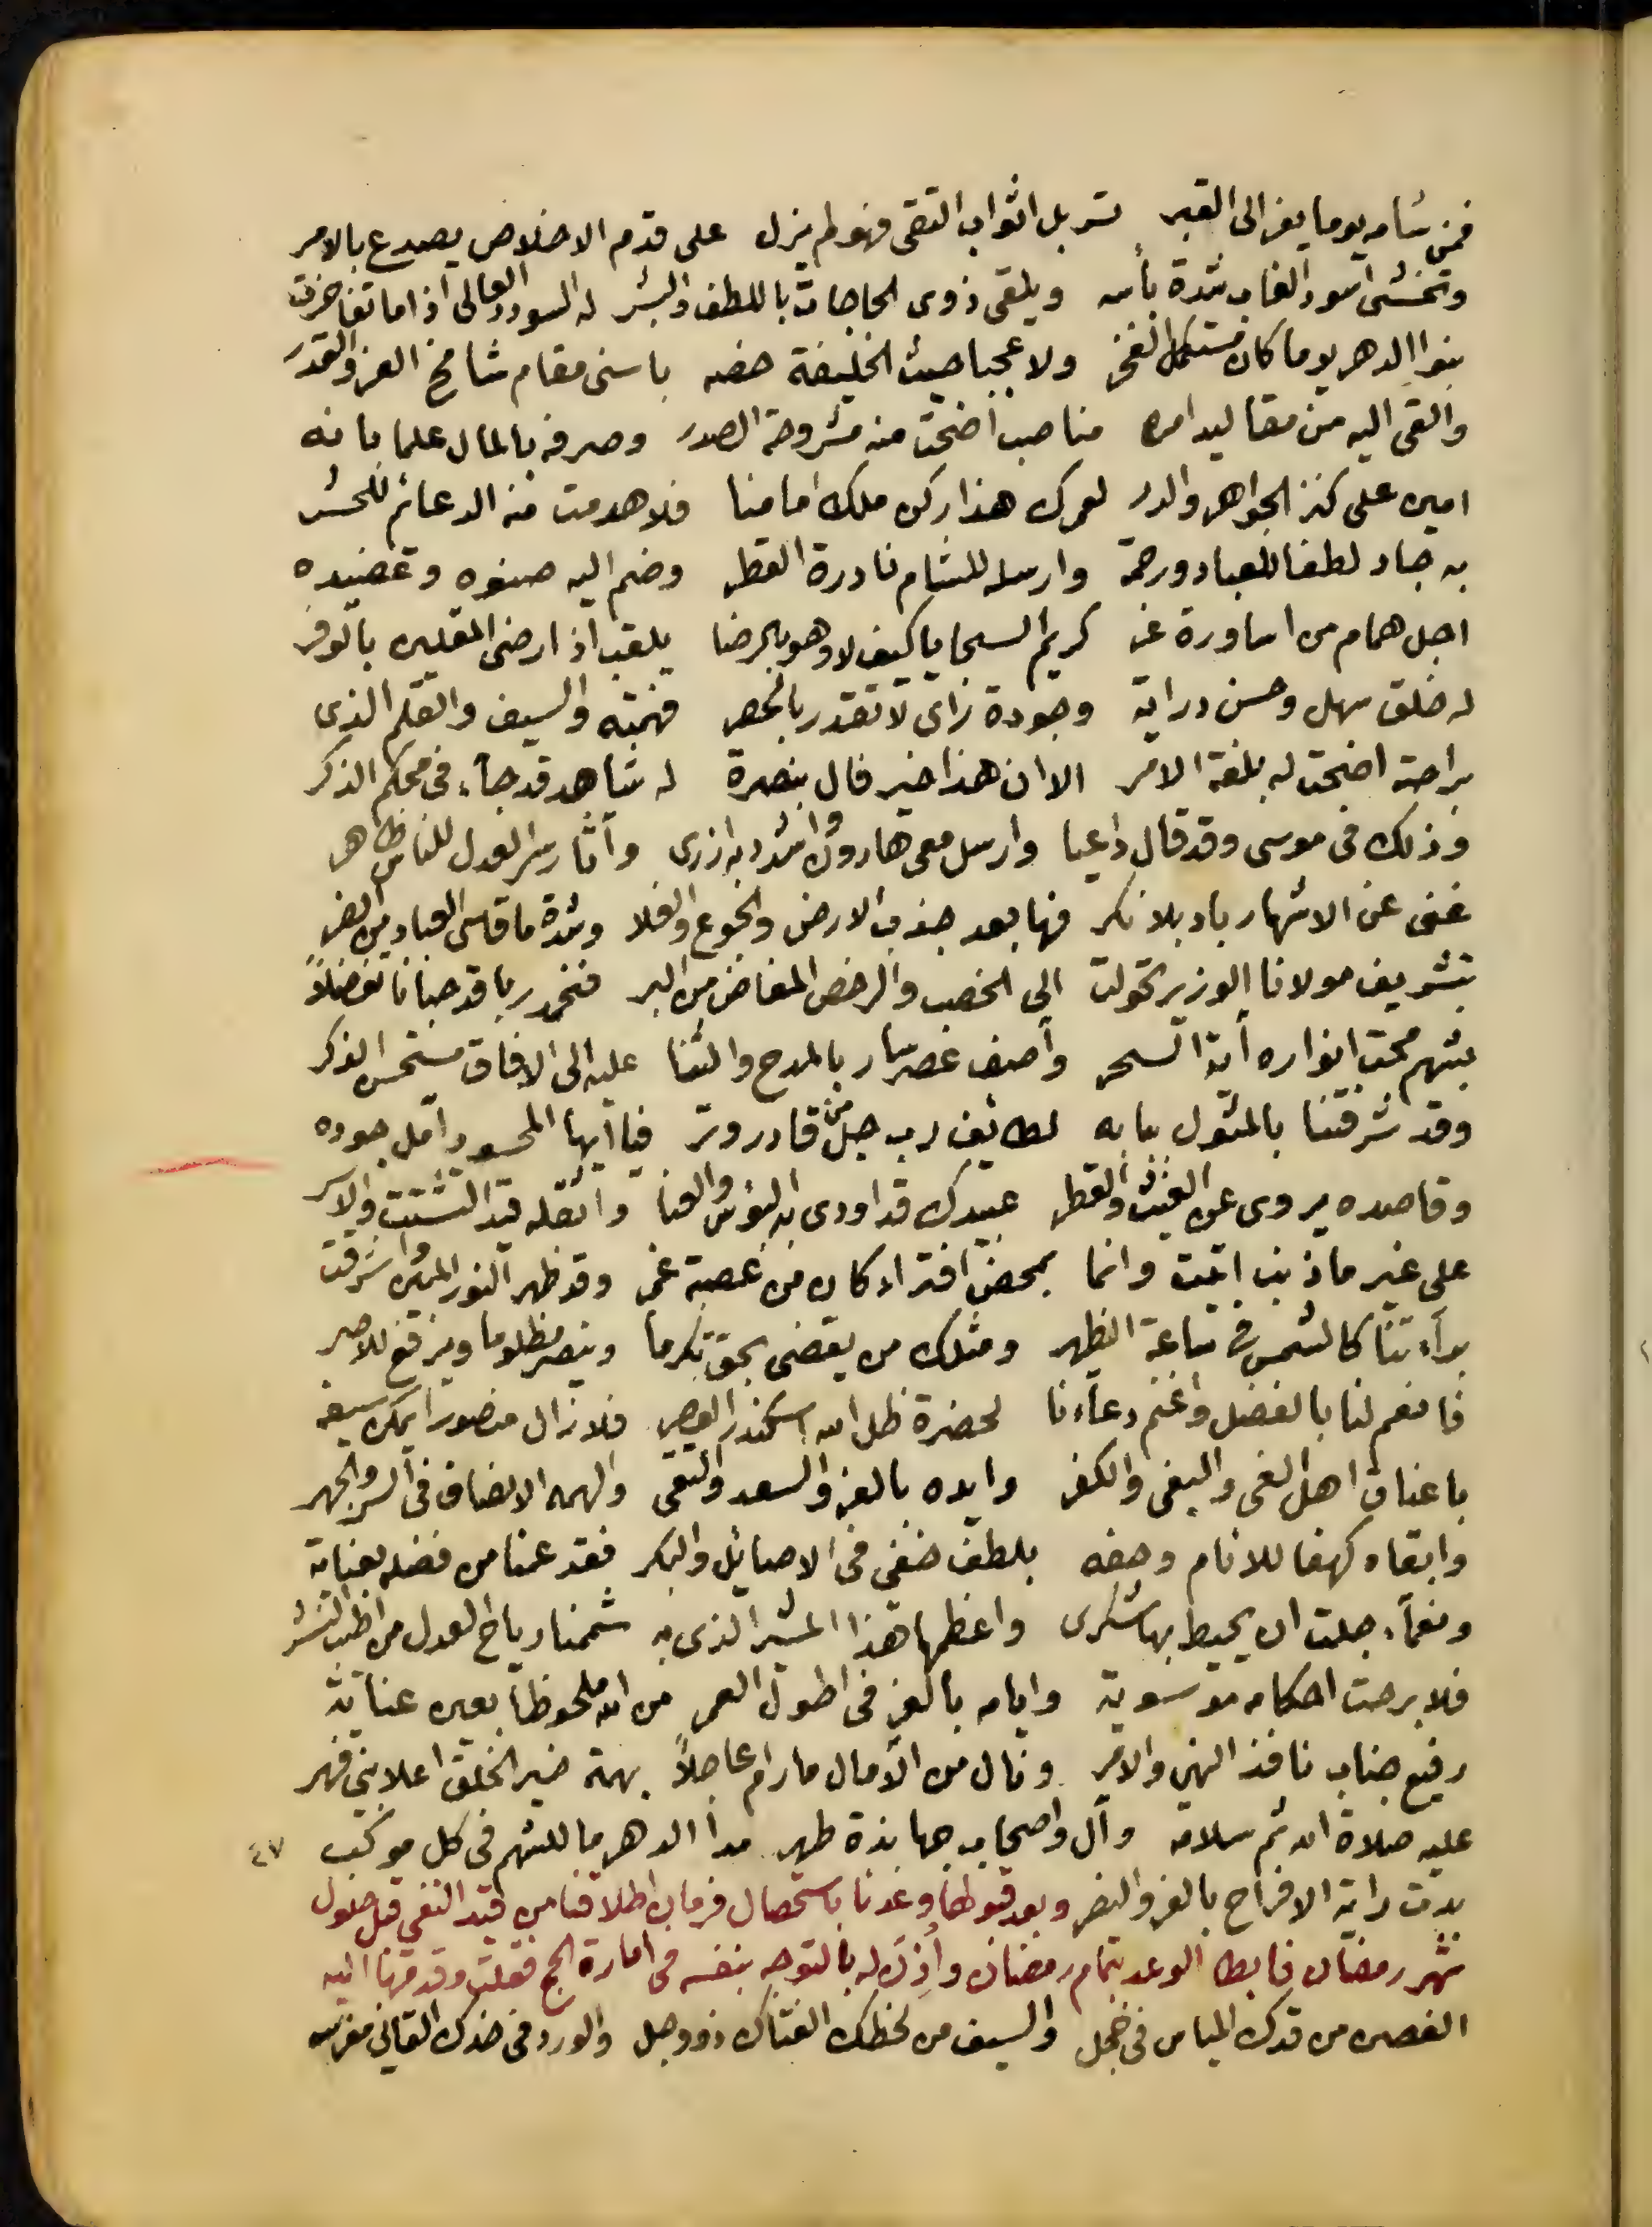 فمن شامه يوما يفز الى القبر تسربل اثواب التقى فهو لم يزل على قدم الاخلاص يصدع بالامر
وتخشى اسود الغاب شدة بأسه ويلقى ذوى الحاجات باللطف والبشر له السودد العالى اذا ما تفاخرت
بنوا الدهر يوما كان مستكمل الفخر ولا عجبا حيث الخليفة خصه باسنى مقام شامخ العز والقدر
والقى اليه من مقاليد امره مناصب اضحت منه مشروحة الصدر وصرفه بالمال علما بانه
امين على كنز الجواهر والدر لعمرك هذا ركن ملك امامنا فلا هدمت منه الدعائم للحشر
به جاد لطفا للعباد ورحمة وارسله للشام نادرة القطر وضم اليه صنوه وعضيده
اجل همام من اساورة غر كريم السجايا كيف لا وهو بالرضا يلقب اذ ارضى المقلين بالوفر
له خلق سهل وحسن دراية وجودة رأى لا تقدر بالحصر فهمته والسيف والقلم الذى
براحته اضحت له بلغة الامر الا ان هذا خير فال بنصرة له شاهد قد جاء فى محكم الذكر
وذلك فى موسى وقد قال داعيا وارسل معى هارون واشدد به ازرى وآثار سر العدل للناس ظاهر
غنى عن الاشهار باد بلا نكر فها بعد جذب الارض والجوع والغلا وشدة ما قاسى العباد من الضر
بتشريف مولانا الوزير تحولت الى الخصب والرخص المفاض من البر فنحمد ربا قد حبانا تفضلا
بشهم محت انواره آية السحر وآصف عصر سار بالمدح والثنا عليه الى الافاق مستحسن الذكر
وقد شرفتنا بالمثول ببابه لطائف رب جل من قادر وتر فيا ايها المحسود آمل جوده
وقاصده يروى عن الغيث والقطر عبيدك قد اودى به البؤس والعنا واثقله قيد التشتت والاسر
على غير ما ذنب اتيت وانما بمحض افتراء كان من عصبة غمر وقد ظهر النور المبين واشرقت
براءتنا كالشمس فى ساعة الظهر ومثلك من يقضى بحق تكرما وينصر مظلوما ويرفع للاصر
فانعم لنا بالفضل واغنم دعاءنا لحضرة ظل الله اسكندر العصر فلا زال منصورا يمكن سيفه
باعناق اهل الغى والبغى والكفر وايده بالعز والسعد والتقى والهمه الانصاف فى السر والجهر
وابقاه كهفا للانام وحفه بلطف خفى فى الاصائل والبكر فقد عمنا من فضله بعناية
ونعماء جلت ان يحيط بها شكرى واعظمها هذا المشير الذى به شممنا رياح العدل من اطيب النشر
فلا برحت احكامه موسوية وايامه بالعز فى اطول العمر من الله ملحوظا بعين عناية
رفيع جناب نافذ النهى والامر ونال من الآمال ما رام عاجلا بهمة خير الخلق اعلا بنى فهر
عليه صلاة الله ثم سلامه وآل واصحاب جهابذة طهر مدا الدهر ما للشهم فى كل موكب ٤٧
بدت راية الافراح بالعز والنصر وبعد قبولها وعدنا باستحصال فرمان اطلاقنا من قيد النفى قبل حلول
شهر رمضان فابطا الوعد بتمام رمضان وأذن له بالتوجه بنفسه فى امارة الحج فقلت وقدمتها اليه
الغصن من قدك المياس فى خجل والسيف من لحظك الفتاك ذو وجل والورد فى خدك القانى مغرسه